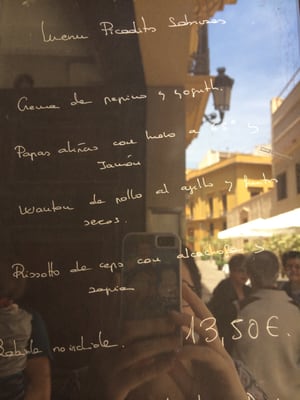 Menu Picadito Sabroso
Crema de pepino y yogurth.
Papas aliñás con huevo a y
Jamón
Wanton de pollo al ajillo y frutos
secos.
Rissotto de ceps con alcachofas y
sepia
13,50€.